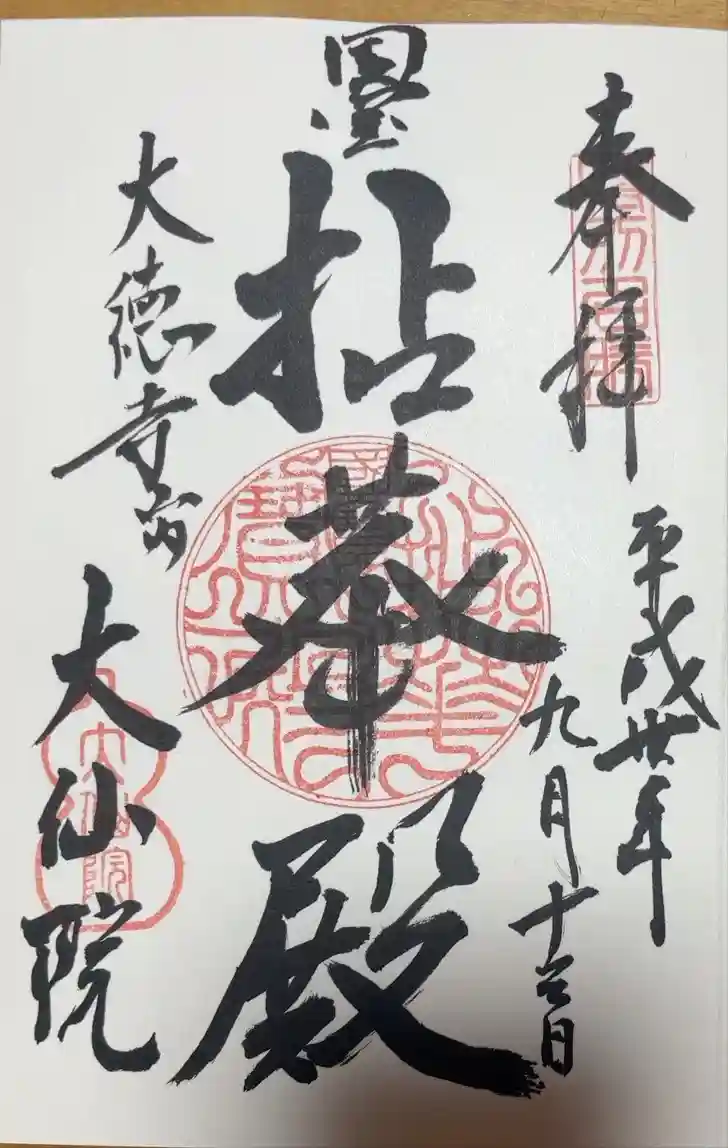 奉拝
平成卅年
九月十 日
墨
拈華殿
大徳寺内
大仙院
大仙院